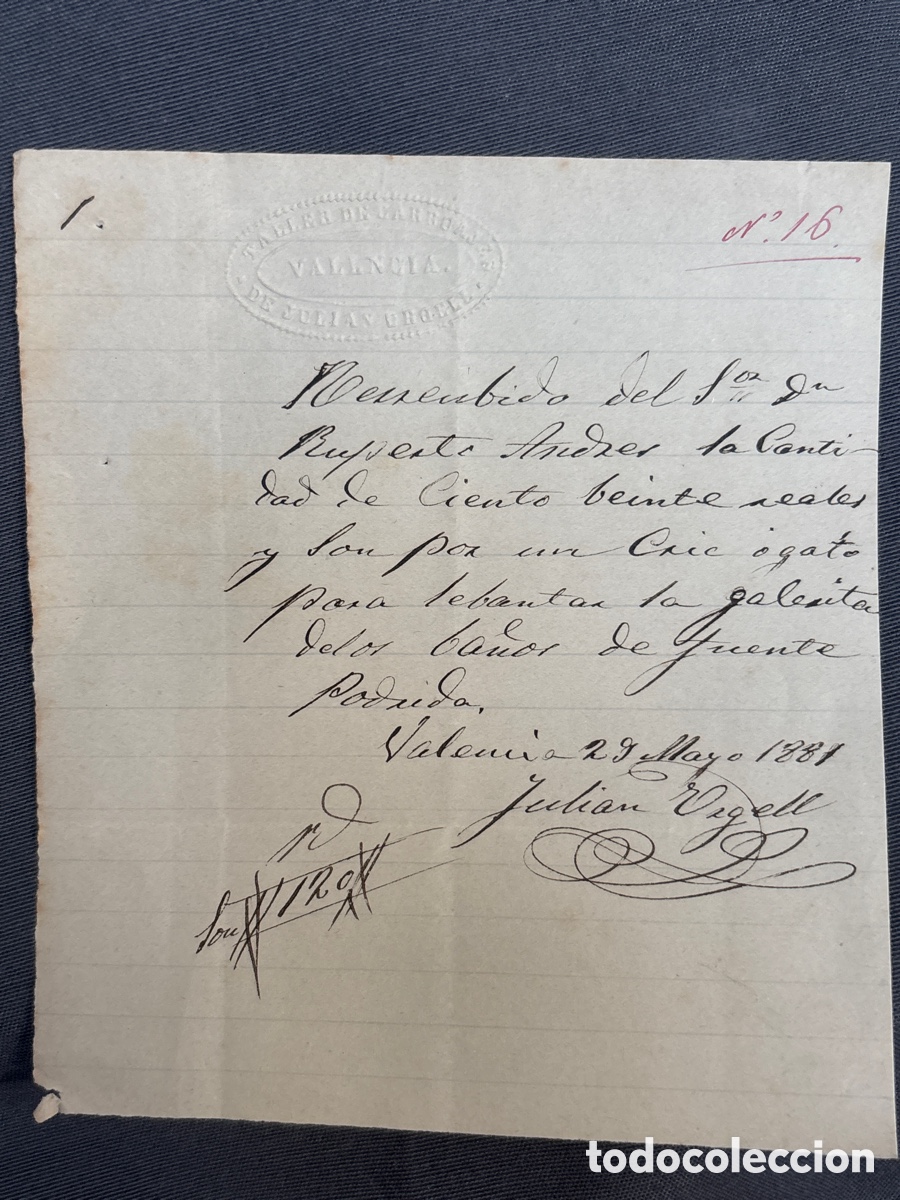 1.
Nº. 16
TALLER DE CARRUAJES
VALENCIA.
DE JULIAN URGELL
Resseubido del Sor dn
Ruperto Andres la Canti-
dad de Ciento beinte reales
y Son por un Cric o gato
para lebantar la galerita
delos baños de fuente
Podrida.
Valencia 29 Mayo 1881
Julian Urgell
rd
Son 120
todocoleccion